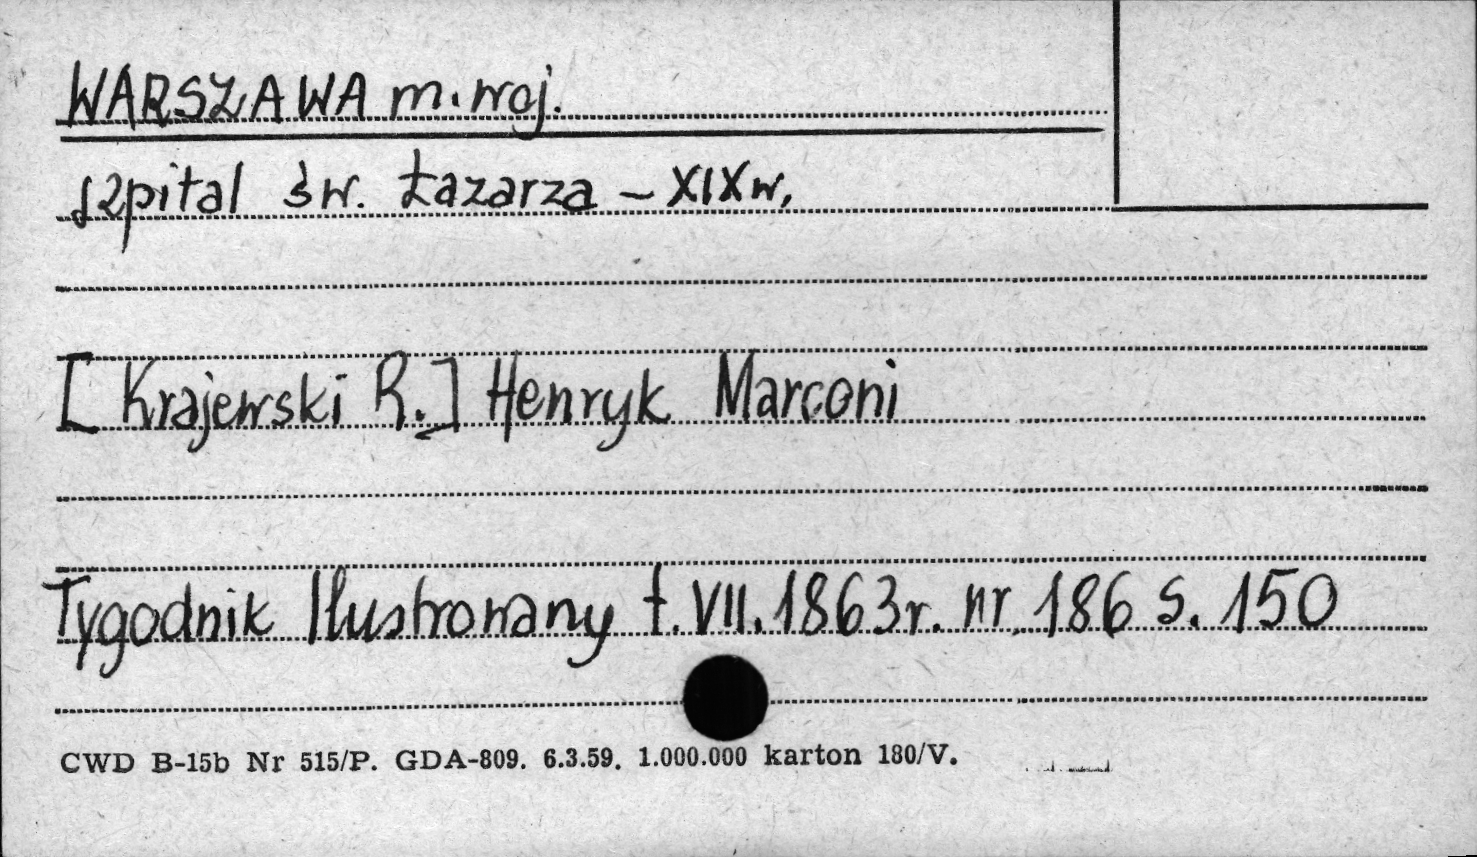 WARSZAWA m. woj.
szpital św. Łazarza – XIX w.
[Krajewski R.] Henryk Marconi
Tygodnik Ilustrowany t. VII. 1863 r. nr 186 s. 150
CWD B-15b Nr 515/P. GDA-809. 6.3.59. 1.000.000 karton 180/V.